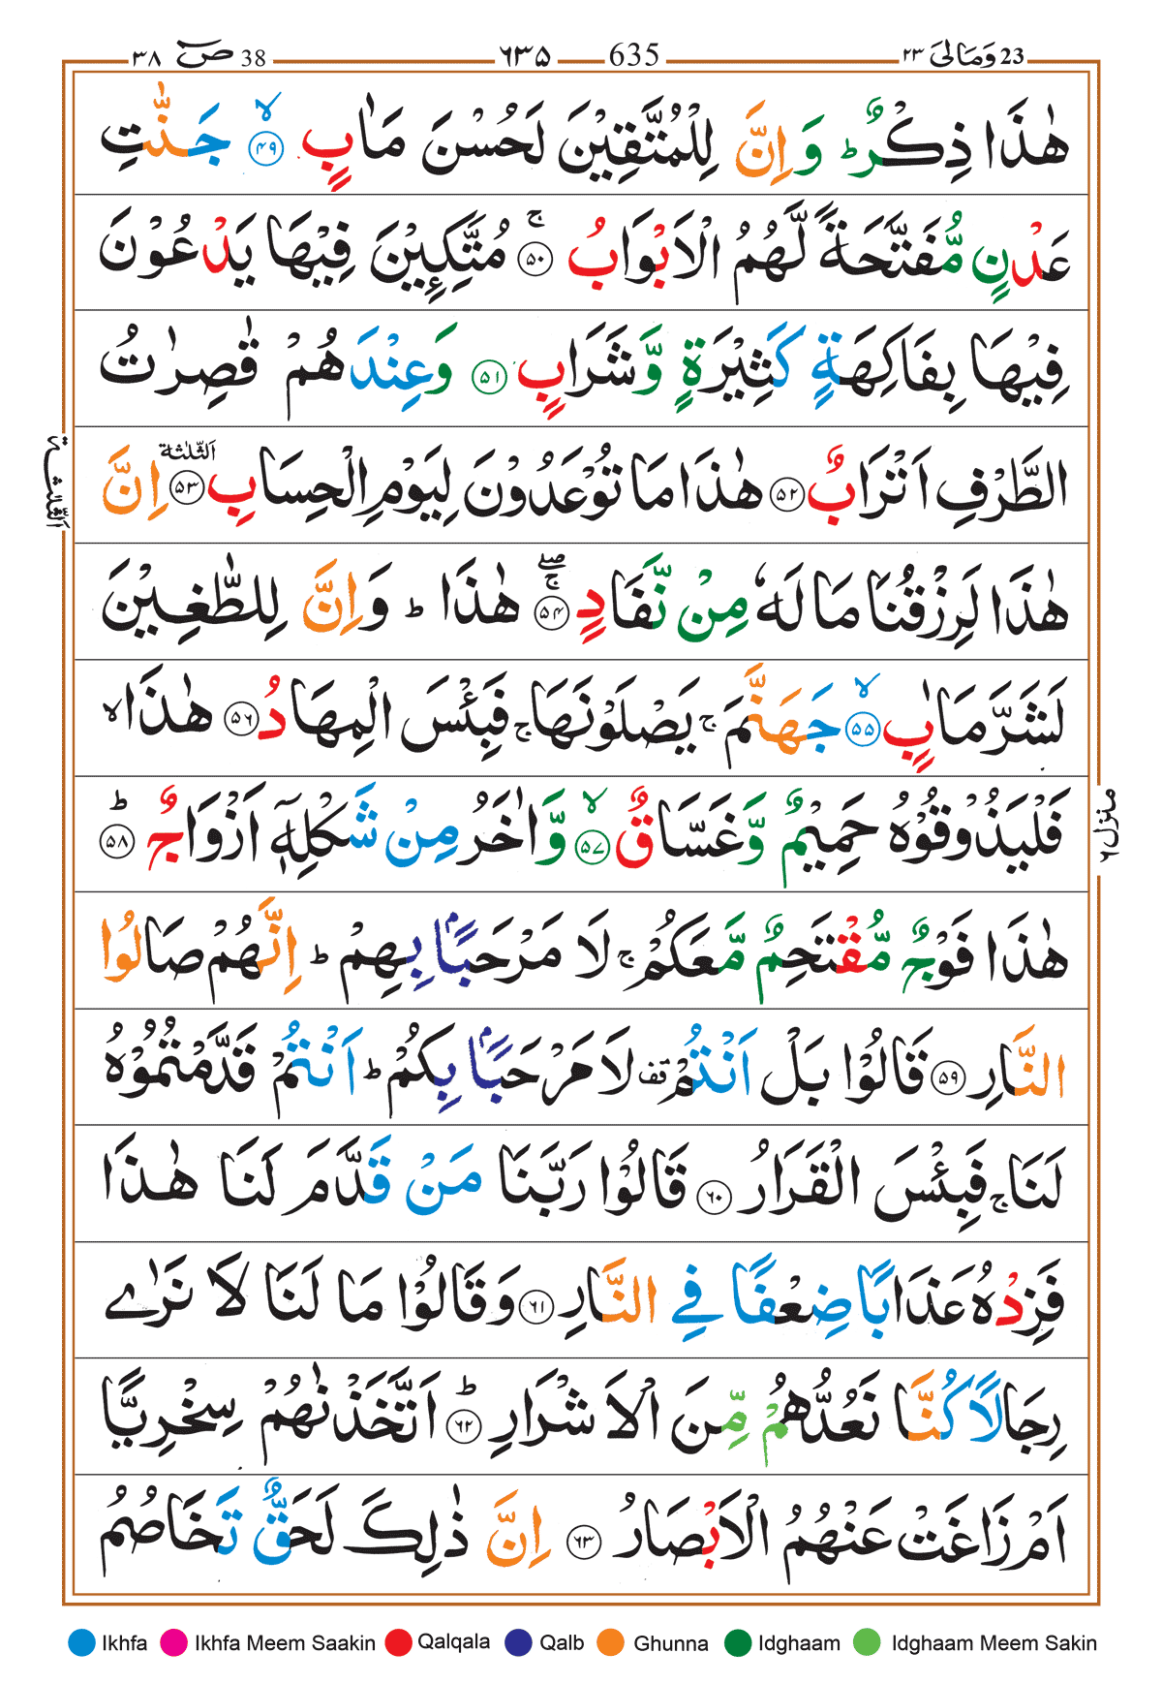 ٣٨ صٓ 38 ٦٣٥ 635 ٢٣ وَمَالِیَ 23
هٰذَا ذِكْرٌ ؕ وَ اِنَّ لِلْمُتَّقِيْنَ لَحُسْنَ مَاٰبٍ ۙ ﴿۴۹﴾ جَنّٰتِ
عَدْنٍ مُّفَتَّحَةً لَّهُمُ الْاَبْوَابُ ۚ ﴿۵۰﴾ مُتَّكِـِٕيْنَ فِيْهَا يَدْعُوْنَ
فِيْهَا بِفَاكِهَةٍ كَثِيْرَةٍ وَّشَرَابٍ ﴿۵۱﴾ وَعِنْدَهُمْ قٰصِرٰتُ
الطَّرْفِ اَتْرَابٌ ﴿۵۲﴾ هٰذَا مَا تُوْعَدُوْنَ لِيَوْمِ الْحِسَابِ ﴿۵۳﴾ اَلثَّلٰثَة اِنَّ
اَلثَّلٰثَة
هٰذَا لَرِزْقُنَا مَا لَهٗ مِنْ نَّفَادٍ ۖۚ ﴿۵۴﴾ هٰذَا ؕ وَاِنَّ لِلطّٰغِيْنَ
لَشَرَّ مَاٰبٍ ۙ ﴿۵۵﴾ جَهَنَّمَ ۚ يَصْلَوْنَهَا ۚ فَبِئْسَ الْمِهَادُ ﴿۵۶﴾ هٰذَا ۙ
فَلْيَذُوْقُوْهُ حَمِيْمٌ وَّغَسَّاقٌ ۙ ﴿۵۷﴾ وَّاٰخَرُ مِنْ شَكْلِهٖۤ اَزْوَاجٌ ؕ ﴿۵۸﴾
منزل ٦
هٰذَا فَوْجٌ مُّقْتَحِمٌ مَّعَكُمْ ۚ لَا مَرْحَبًۢا بِهِمْ ؕ اِنَّهُمْ صَالُوا
النَّارِ ﴿۵۹﴾ قَالُوْا بَلْ اَنْتُمْ قف لَا مَرْحَبًۢا بِكُمْ ؕ اَنْتُمْ قَدَّمْتُمُوْهُ
لَنَا ۚ فَبِئْسَ الْقَرَارُ ﴿۶۰﴾ قَالُوْا رَبَّنَا مَنْ قَدَّمَ لَنَا هٰذَا
فَزِدْهُ عَذَابًا ضِعْفًا فِي النَّارِ ﴿۶۱﴾ وَقَالُوْا مَا لَنَا لَا نَرٰى
رِجَالًا كُنَّا نَعُدُّهُمْ مِّنَ الْاَشْرَارِ ؕ ﴿۶۲﴾ اَتَّخَذْنٰهُمْ سِخْرِيًّا
اَمْ زَاغَتْ عَنْهُمُ الْاَبْصَارُ ﴿۶۳﴾ اِنَّ ذٰلِكَ لَحَقٌّ تَخَاصُمُ
Ikhfa Ikhfa Meem Saakin Qalqala Qalb Ghunna Idghaam Idghaam Meem Sakin